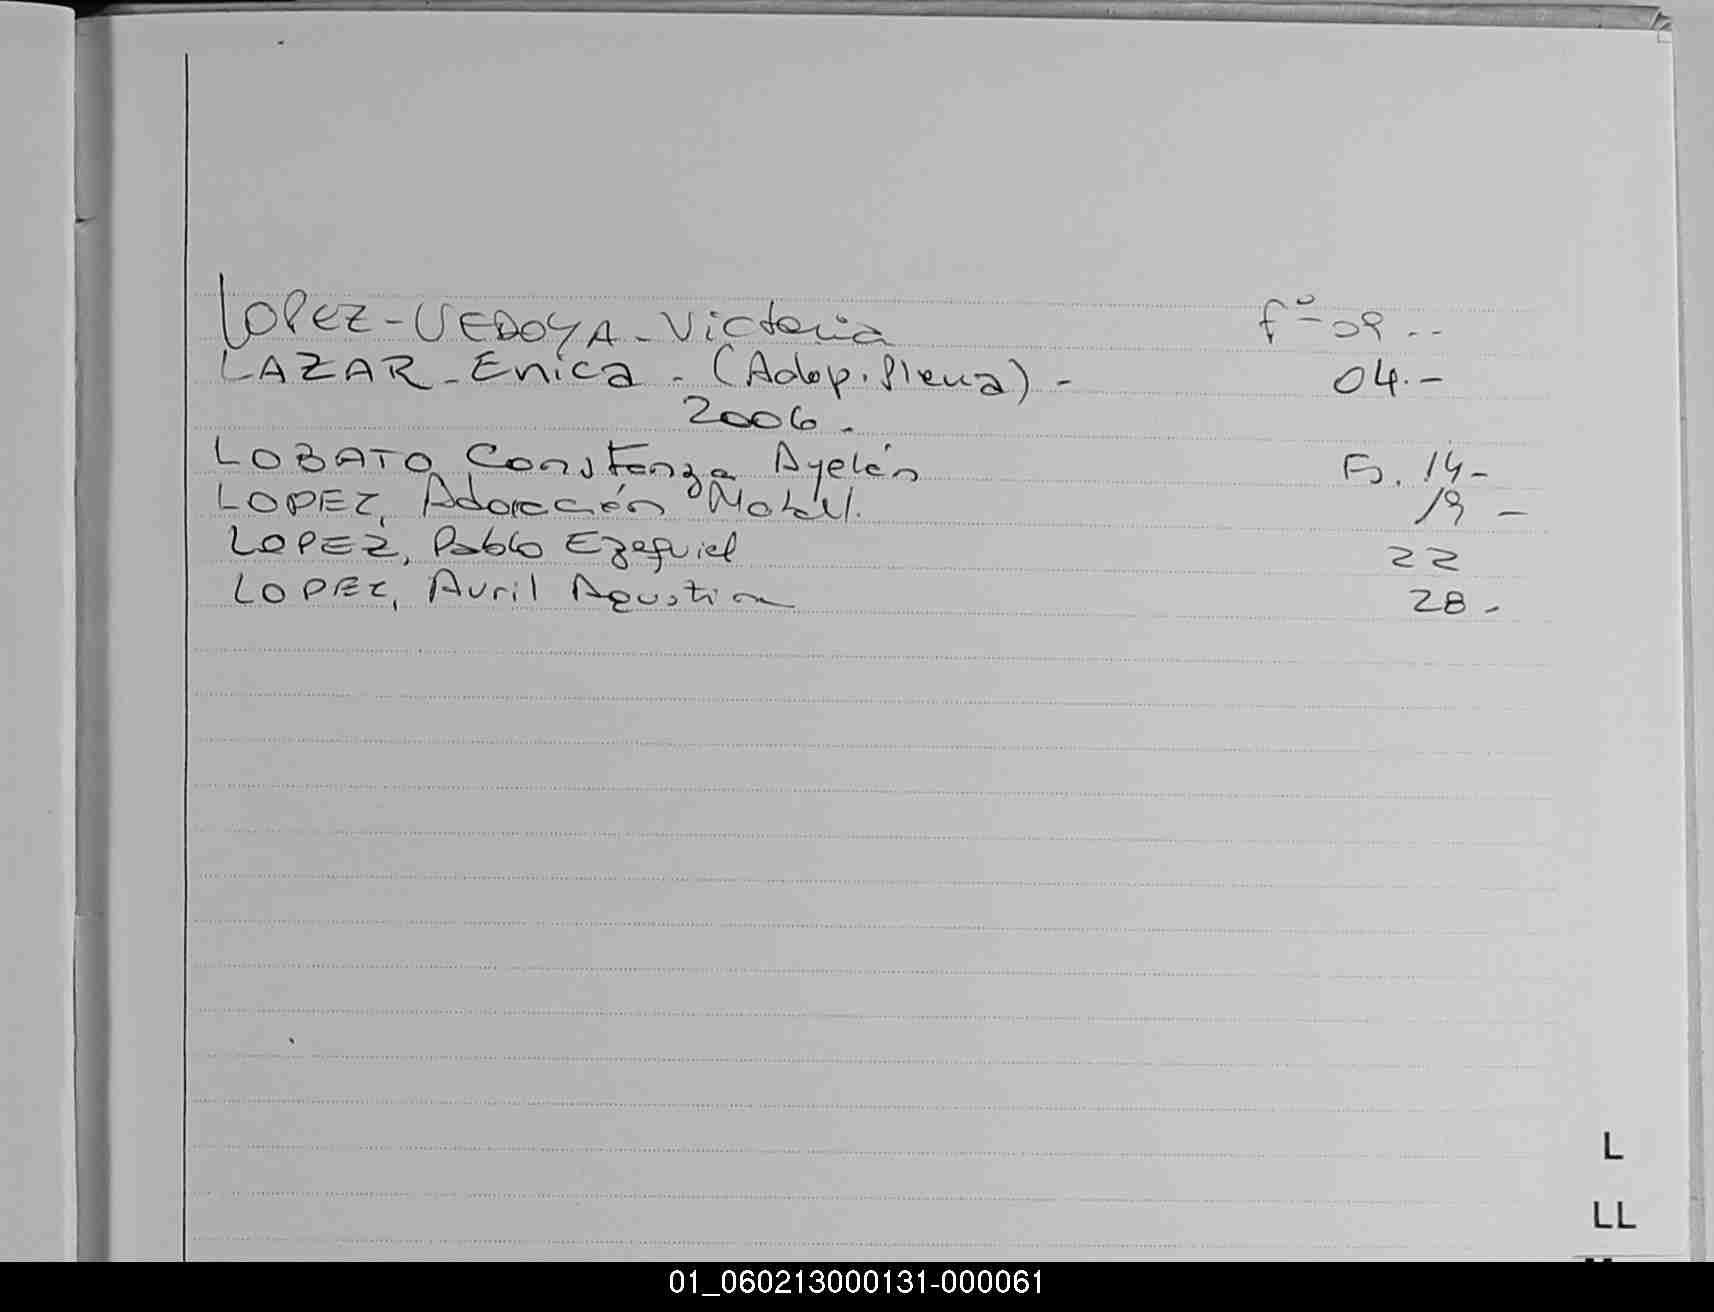 LOPEZ-VEDOYA-Victoria fº-09--
LAZAR-Erica-(Adop.Plena)- 04.-
2006.-
LOBATO Constanza Ayelén Fs. 14-
LOPEZ, Adoración 19-
LOPEZ, Pablo Ezequiel 22
LOPEZ, Avril Agustina 28-
L
LL
01_060213000131-000061